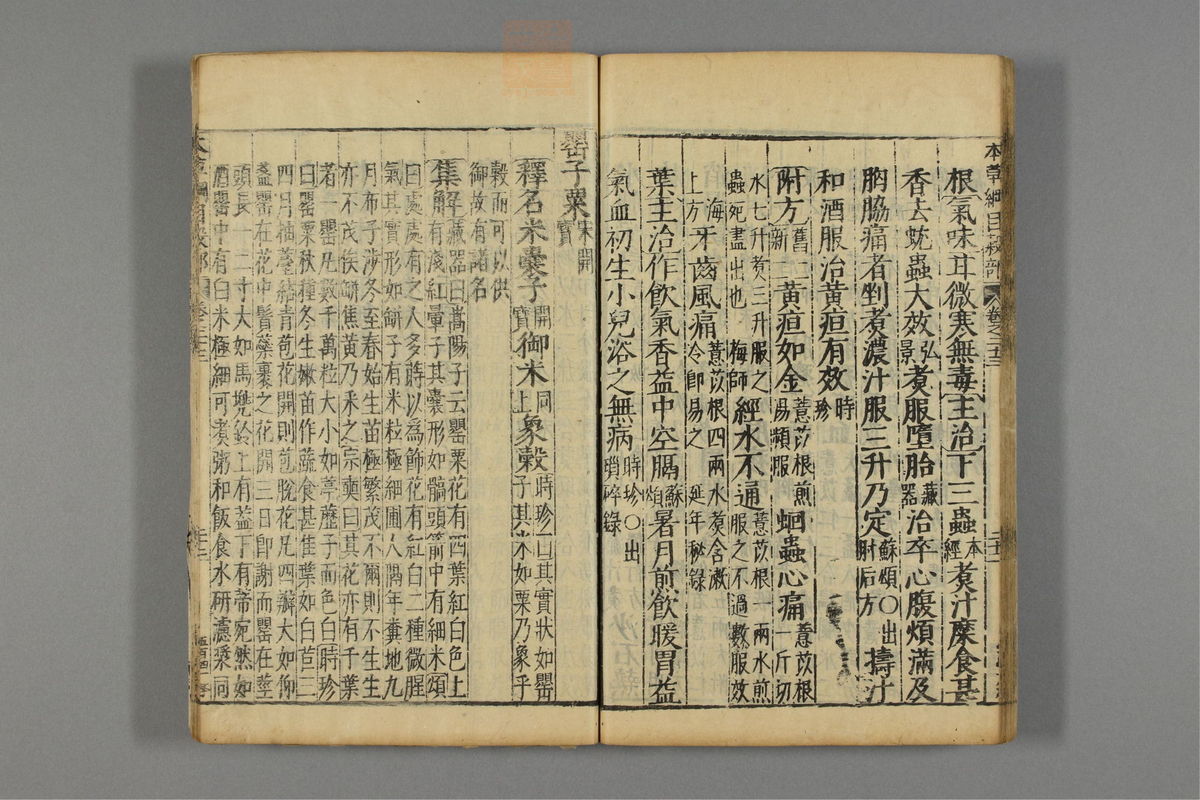 本草綱目穀部 卷之二十三
根氣味甘微寒無毒主治下三蟲本經煮汁糜食甚
香去蚘蟲大效弘景煮服墮胎藏器治卒心腹煩滿及
胸脇痛者剉煮濃汁服三升乃定蘇頌〇出肘后方擣汁
和酒服治黃疸有效時珍
附方舊二新 黃疸如金薏苡根煎湯頻服 蛔蟲心痛薏苡根一斤切
水七升煮三升服之蟲死盡出也 梅師 經水不通薏苡根一兩水煎服之不過數服效
海上方 牙齒風痛薏苡根四兩水煮含漱冷卽易之 延年秘錄
葉主治作飲氣香益中空膈蘇頌暑月煎飲暖胃益
氣血初生小兒浴之無病時珍〇出瑣碎錄
罌子粟宋開寶
釋名米囊子開寶御米同上象穀時珍曰其實狀如罌子其米如粟乃象乎
穀而可以供御故有諸名
集解藏器曰嵩陽子云罌粟花有四葉紅白色上
有淺紅暈子其囊形如髇頭箭中有細米頌
曰處處有之人多蒔以爲飾花有紅白二種微腥
氣其實形如缾子有米粒極細圃人隔年糞地九
月布子涉冬至春始生苗極繁茂不爾則不生生
亦不茂俟缾焦黃乃釆之宗奭曰其花亦有千葉
者一罌凡數千萬粒大小如葶藶子而色白時珍
曰罌粟秋種冬生嫩苗作蔬食甚佳葉如白苣三
四月抽薹結青苞花開則苞脫花凡四瓣大如仰
盞罌在花中鬚蘂裹之花開三日卽謝而罌在莖
頭長一二寸大如馬兜鈴上有蓋下有蒂宛然如
酒罌中有白米極細可煮粥和飯食水研濾漿同